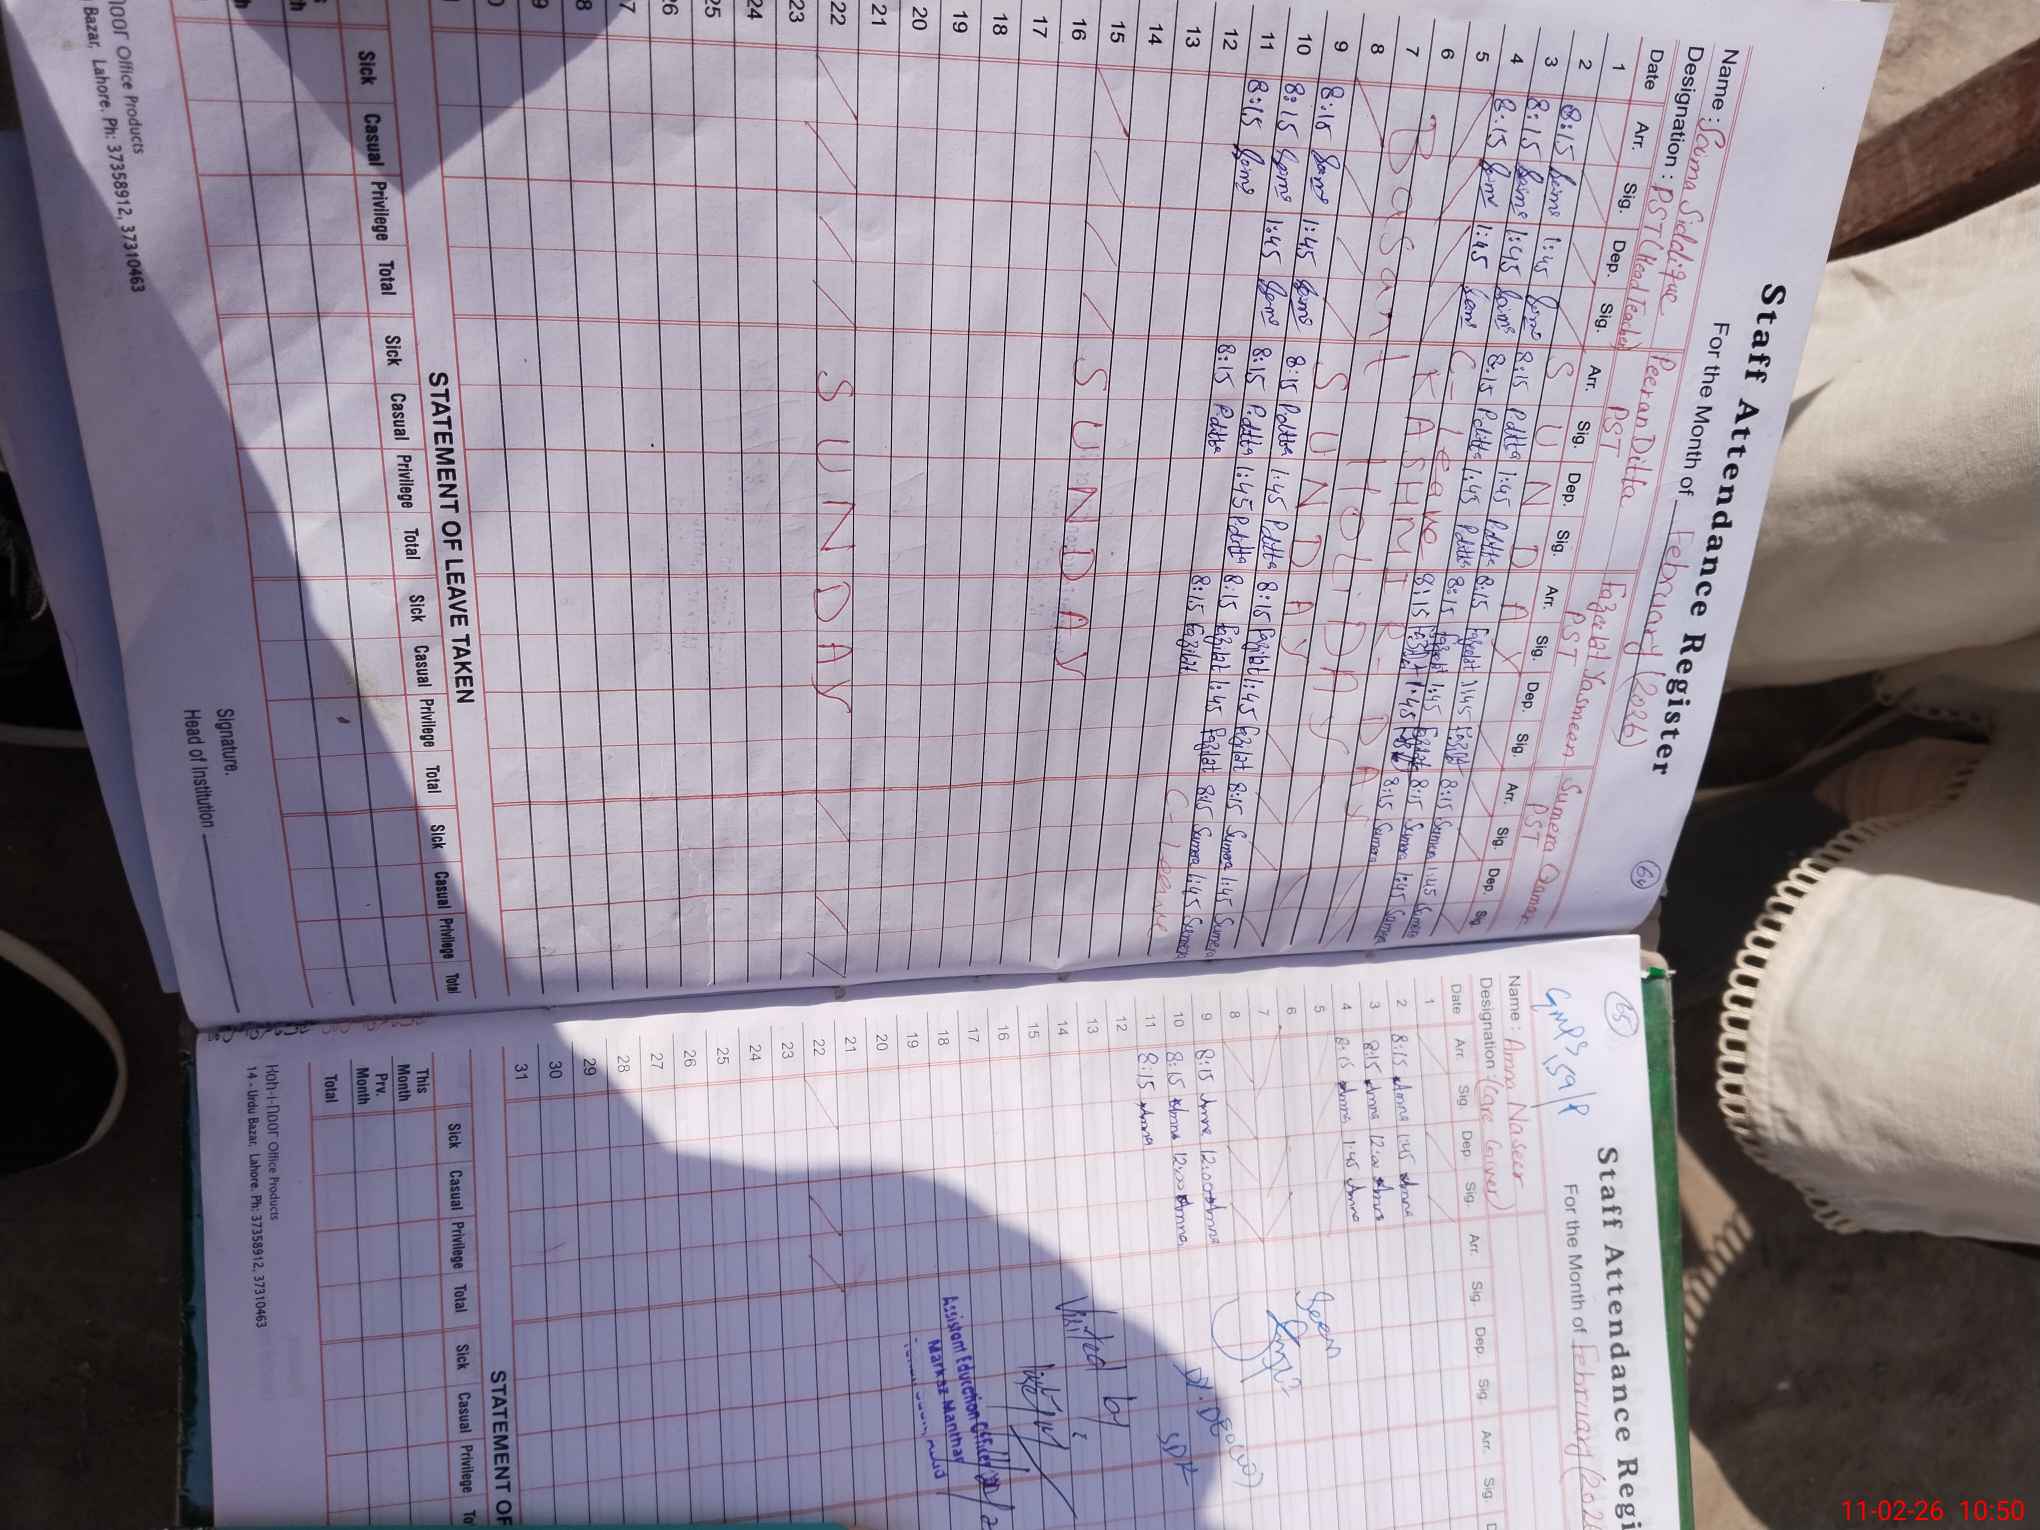 Staff Attendance Register
For the Month of February (2026)
64
Name : Saima Siddique Peeran Ditta Fazeelat Yasmeen Sumera Qamar
Designation : PST (Head Teacher) PST PST PST
Date Arr. Sig. Dep. Sig. Arr. Sig. Dep. Sig. Arr. Sig. Dep. Sig. Arr. Sig. Dep. Sig.
1 S U N D A Y
2 8:15 Saima 1:45 Saima 8:15 P.ditta 1:45 P.ditta 8:15 Fazeelat 1:45 Fazeelat 8:15 Sumera 1:45 Sumera
3 8:15 Saima 1:45 Saima 8:15 P.ditta 1:45 P.ditta 8:15 Fazeelat 1:45 Fazeelat 8:15 Sumera 1:45 Sumera
4 8:15 Saima 1:45 Saima C-Leave 8:15 1:45 8:15 Sumera 1:45 Sumera
5 KASHMIR DAY
6 Basant HOLIDAY
7
8 S U N D A Y
9 8:15 Saima 1:45 Saima 8:15 P.ditta 1:45 P.ditta 8:15 Fazilat 1:45 Fazilat 8:15 Sumera 1:45 Sumera
10 8:15 Saima 1:45 Saima 8:15 P.ditta 1:45 P.ditta 8:15 Fazilat 1:45 Fazilat 8:15 Sumera 1:45 Sumera
11 8:15 Saima 8:15 P.ditta 8:15 Fazilat C-Leave
12
13
14
15 S U N D A Y
16
17
18
19
20
21
22 S U N D A Y
23
24
25
26
27
28
29
30
STATEMENT OF LEAVE TAKEN
Sick Casual Privilege Total Sick Casual Privilege Total Sick Casual Privilege Total Sick Casual Privilege Total
Signature.
Head of Institution
Office Products
Bazar, Lahore. Ph: 37358912, 37310463
65
GMPS 159/P
Staff Attendance Regi
For the Month of February (202
Name : Amna Naseer
Designation : (Care Giver)
Date Arr. Sig. Dep. Sig. Arr. Sig. Dep. Sig. Arr. Sig.
1
2 8:15 Amna 1:45 Amna
3 8:15 Amna 12:00 Amna
4 8:15 Amna 1:45 Amna
5
6
7
8
9 8:15 Amna 12:00 Amna
10 8:15 Amna 12:00 Amna
11 8:15 Amna
12
13
14
15
16
17
18
19
20
21
22
23
24
25
26
27
28
29
30
31
Seen
Dy. DEO (W)
SDK
Visited by
Assistant Education Officer
Markaz Manthar
STATEMENT OF
Sick Casual Privilege Total Sick Casual Privilege To
This Month
Prv. Month
Total
Hoh-i-noor Office Products
14 - Urdu Bazar, Lahore. Ph: 37358912, 37310463
11-02-26 10:50